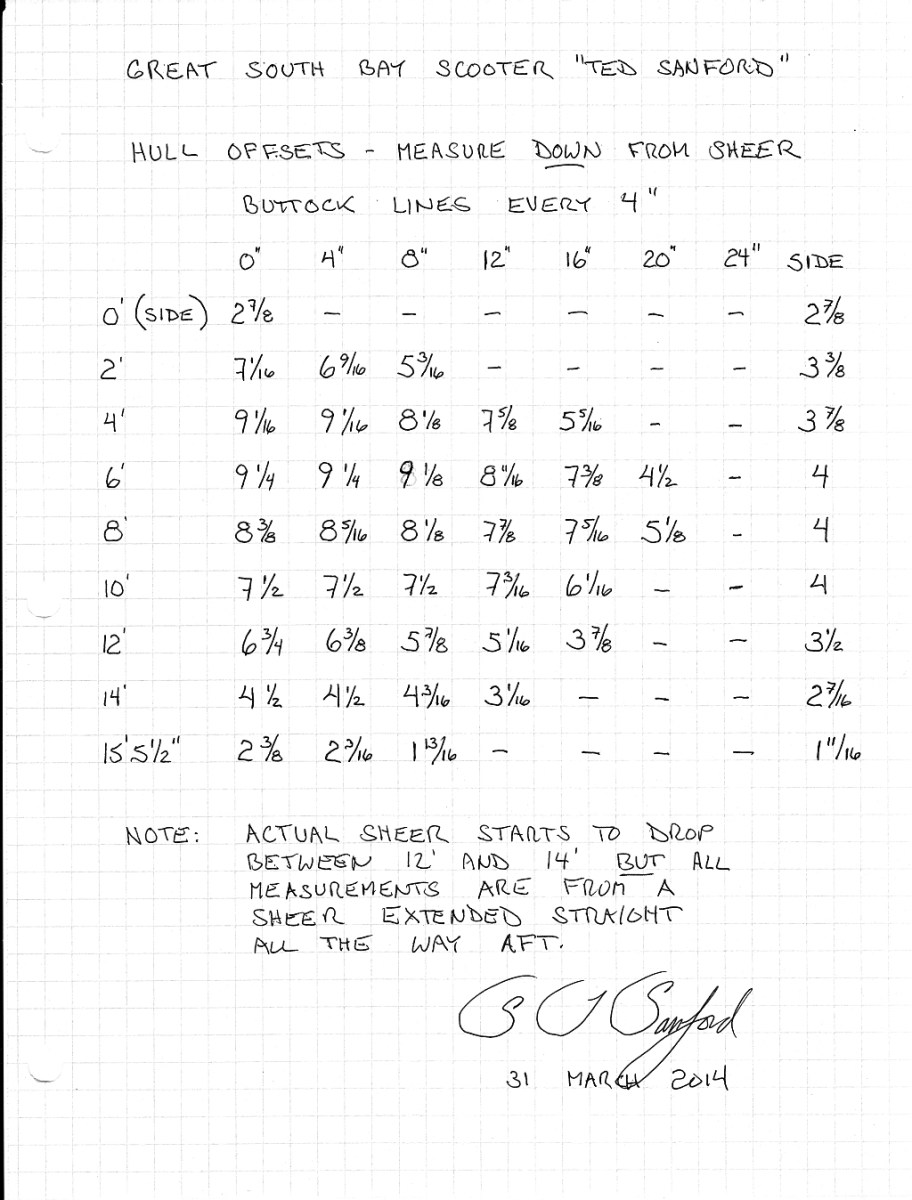 GREAT SOUTH BAY SCOOTER "TED SANFORD"
HULL OFFSETS - MEASURE DOWN FROM SHEER
BUTTOCK LINES EVERY 4"
0" 4" 8" 12" 16" 20" 24" SIDE
0' (SIDE) 2 7/8 - - - - - - 2 7/8
2' 7 1/16 6 9/16 5 3/16 - - - - 3 3/8
4' 9 1/16 9 1/16 8 1/8 7 5/8 5 5/16 - - 3 7/8
6' 9 1/4 9 1/4 9 1/8 8 11/16 7 3/8 4 1/2 - 4
8' 8 3/8 8 5/16 8 1/8 7 7/8 7 5/16 5 1/8 - 4
10' 7 1/2 7 1/2 7 1/2 7 3/16 6 1/16 - - 4
12' 6 3/4 6 3/8 5 7/8 5 1/16 3 7/8 - - 3 1/2
14' 4 1/2 4 1/2 4 3/16 3 1/16 - - - 2 7/16
15' 5 1/2" 2 3/8 2 3/16 1 13/16 - - - - 1 11/16
NOTE: ACTUAL SHEER STARTS TO DROP
BETWEEN 12' AND 14' BUT ALL
MEASUREMENTS ARE FROM A
SHEER EXTENDED STRAIGHT
ALL THE WAY AFT.
Sanford
31 MARCH 2014